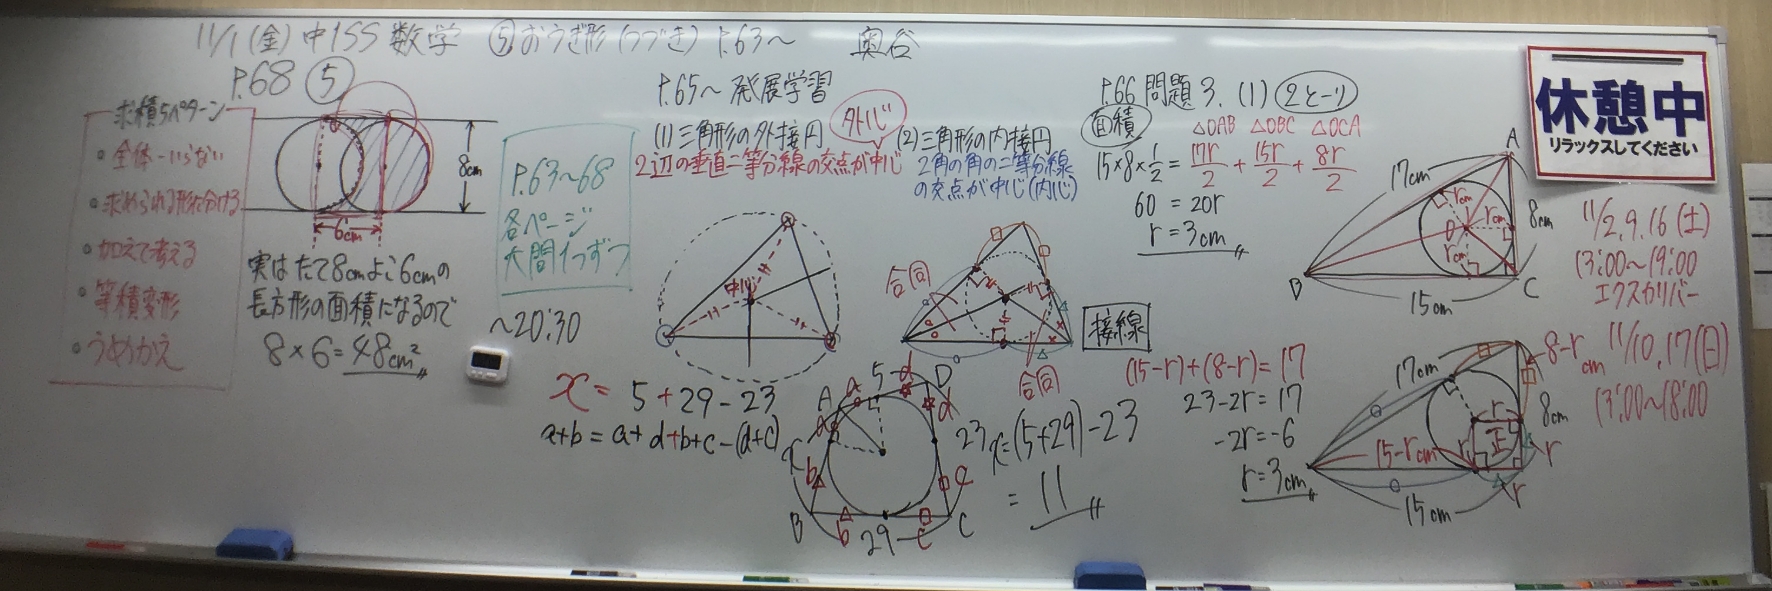 11/1 (金) 中1SS 数学 ⑤おうぎ形 (つづき) P.63〜 奥谷
P.68 ⑤
求積5パターン
・全体-いらない
・求められる形に分ける
・加えて考える
・等積変形
・うめかえ
8cm
6cm
実はたて8cmよこ6cmの
長方形の面積になるので
8×6=48cm²
P.63〜68
各ページ
大問1つずつ
〜20:30
P.65〜 発展学習
(1) 三角形の外接円 外心
2辺の垂直二等分線の交点が中心
中心
(2) 三角形の内接円
2角の角の二等分線
の交点が中心(内心)
合同
合同
接線
x = 5+29-23
a+b = a+d+b+c-(d+c)
A
a
5
d
D
d
a
x
b
B
b
29
c
C
c
23
x=(5+29)-23
= 11
P.66 問題3. (1) 2とーり
面積
△OAB △OBC △OCA
15×8×1/2 = 17r/2 + 15r/2 + 8r/2
60 = 20r
r = 3cm
A
17cm
rcm
rcm
O
rcm
8cm
B
15cm
C
(15-r)+(8-r)=17
23-2r=17
-2r=-6
r=3cm
17cm
8-rcm
8cm
r
r
正
15-rcm
r
r
15cm
休憩中
リラックスしてください
11/2,9,16(土)
13:00〜19:00
エクスカリバー
11/10,17(日)
13:00〜18:00